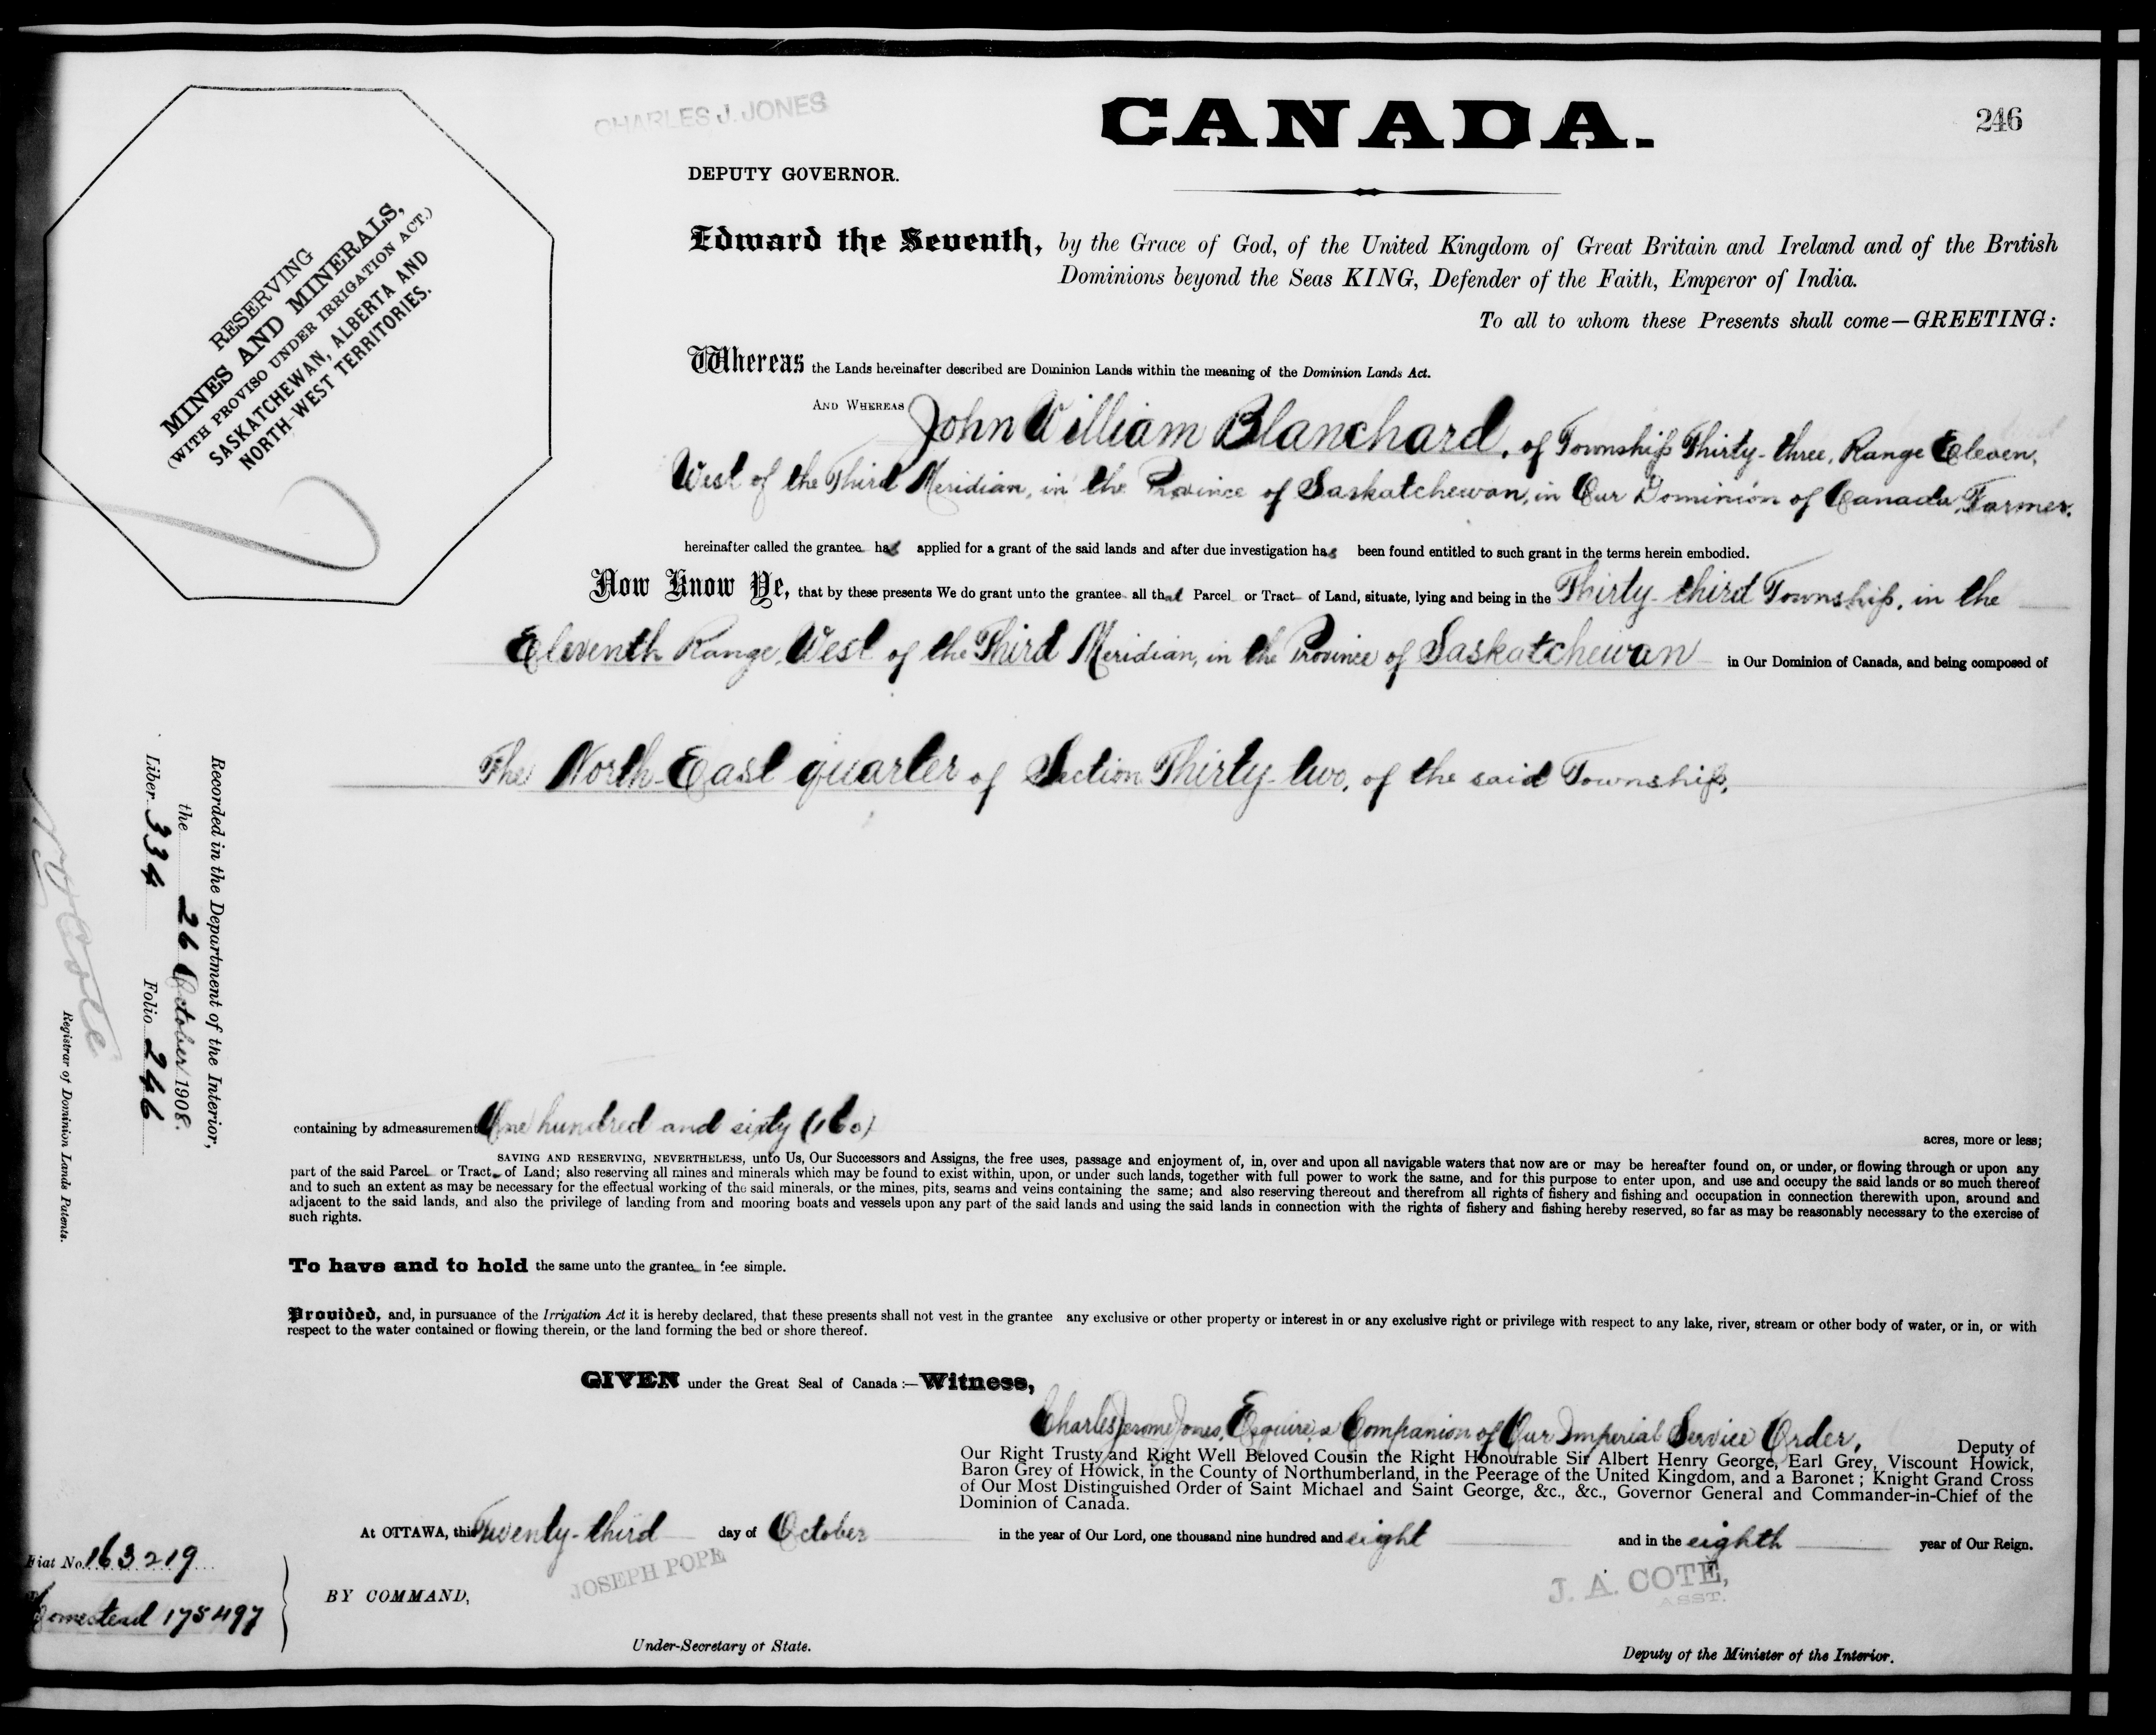 CHARLES J. JONES
CANADA.
246
DEPUTY GOVERNOR.
RESERVING
MINES AND MINERALS,
(WITH PROVISO UNDER IRRIGATION ACT.)
SASKATCHEWAN, ALBERTA AND
NORTH-WEST TERRITORIES.
Edward the Seventh, by the Grace of God, of the United Kingdom of Great Britain and Ireland and of the British
Dominions beyond the Seas KING, Defender of the Faith, Emperor of India.
To all to whom these Presents shall come—GREETING:
Whereas the Lands hereinafter described are Dominion Lands within the meaning of the Dominion Lands Act.
AND WHEREAS John William Blanchard, of Township Thirty-three, Range Eleven,
West of the Third Meridian, in the Province of Saskatchewan, in Our Dominion of Canada, Farmer,
hereinafter called the grantee has applied for a grant of the said lands and after due investigation has been found entitled to such grant in the terms herein embodied.
Now Know Ye, that by these presents We do grant unto the grantee all that Parcel or Tract of Land, situate, lying and being in the Thirty-third Township, in the
Eleventh Range, West of the Third Meridian, in the Province of Saskatchewan in Our Dominion of Canada, and being composed of
The North-East quarter of Section Thirty-two, of the said Township,
Recorded in the Department of the Interior,
the 26 October 1908.
Liber 334 Folio 246
Registrar of Dominion Lands Patents.
containing by admeasurement One hundred and sixty (160) acres, more or less;
SAVING AND RESERVING, NEVERTHELESS, unto Us, Our Successors and Assigns, the free uses, passage and enjoyment of, in, over and upon all navigable waters that now are or may be hereafter found on, or under, or flowing through or upon any
part of the said Parcel or Tract of Land; also reserving all mines and minerals which may be found to exist within, upon, or under such lands, together with full power to work the same, and for this purpose to enter upon, and use and occupy the said lands or so much thereof
and to such an extent as may be necessary for the effectual working of the said minerals, or the mines, pits, seams and veins containing the same; and also reserving thereout and therefrom all rights of fishery and fishing and occupation in connection therewith upon, around and
adjacent to the said lands, and also the privilege of landing from and mooring boats and vessels upon any part of the said lands and using the said lands in connection with the rights of fishery and fishing hereby reserved, so far as may be reasonably necessary to the exercise of
such rights.
To have and to hold the same unto the grantee in fee simple.
Provided, and, in pursuance of the Irrigation Act it is hereby declared, that these presents shall not vest in the grantee any exclusive or other property or interest in or any exclusive right or privilege with respect to any lake, river, stream or other body of water, or in, or with
respect to the water contained or flowing therein, or the land forming the bed or shore thereof.
GIVEN under the Great Seal of Canada:—Witness,
Charles Jerome Jones, Esquire, a Companion of Our Imperial Service Order, Deputy of
Our Right Trusty and Right Well Beloved Cousin the Right Honourable Sir Albert Henry George, Earl Grey, Viscount Howick,
Baron Grey of Howick, in the County of Northumberland, in the Peerage of the United Kingdom, and a Baronet; Knight Grand Cross
of Our Most Distinguished Order of Saint Michael and Saint George, &c., &c., Governor General and Commander-in-Chief of the
Dominion of Canada.
At OTTAWA, this Twenty-third day of October in the year of Our Lord, one thousand nine hundred and eight and in the eighth year of Our Reign.
Fiat No. 163219
Homestead 175497
BY COMMAND,
JOSEPH POPE
Under-Secretary of State.
J. A. COTÉ,
ASST.
Deputy of the Minister of the Interior.